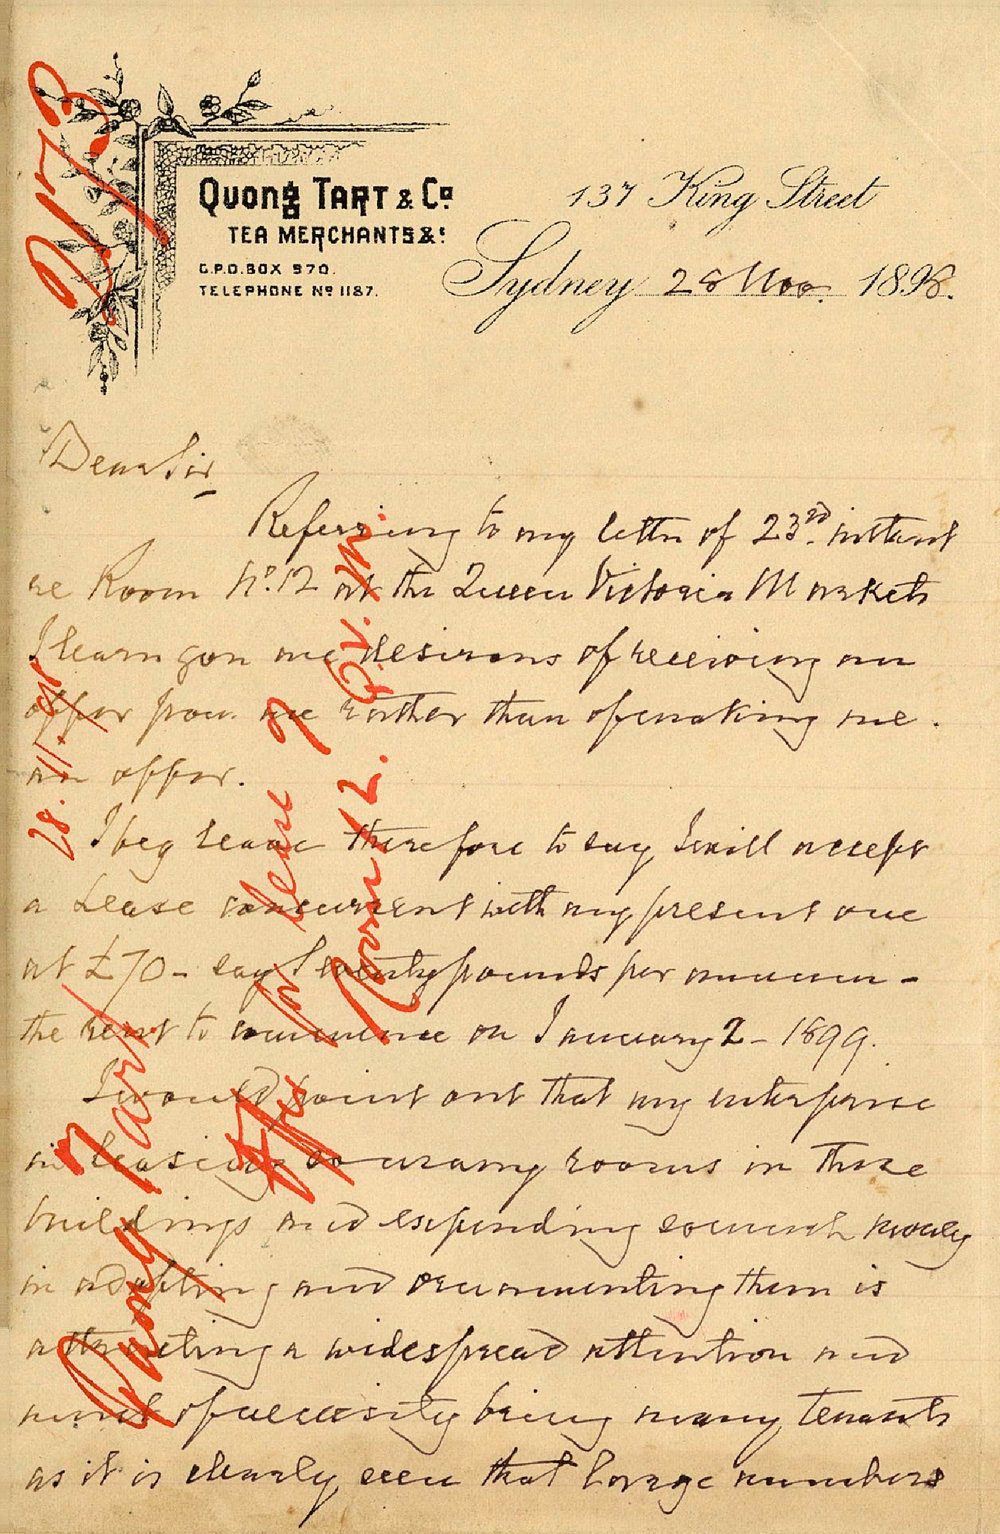 QUONG TART & Co
TEA MERCHANTS &c
G.P.O. BOX 970.
TELEPHONE No 1187.
137 King Street
Sydney 28 Nov. 1898.
Dear Sir
Referring to my letter of 23rd instant
re Room No. 12 at the Queen Victoria Markets
I learn you are desirous of receiving an
offer from me rather than of making me
an offer.
I beg leave therefore to say I will accept
a Lease concurrent with my present one
at £70 - say Seventy pounds per annum -
the rent to commence on January 2 - 1899.
I would point out that my enterprise
in leasing so many rooms in these
buildings and expending so much money
in adapting and ornamenting them is
attracting a widespread attention and
must of necessity bring many tenants
as it is clearly seen that large numbers
28.11.98
Quong Tart
Offer for lease of
Room 12. Q.V.M.